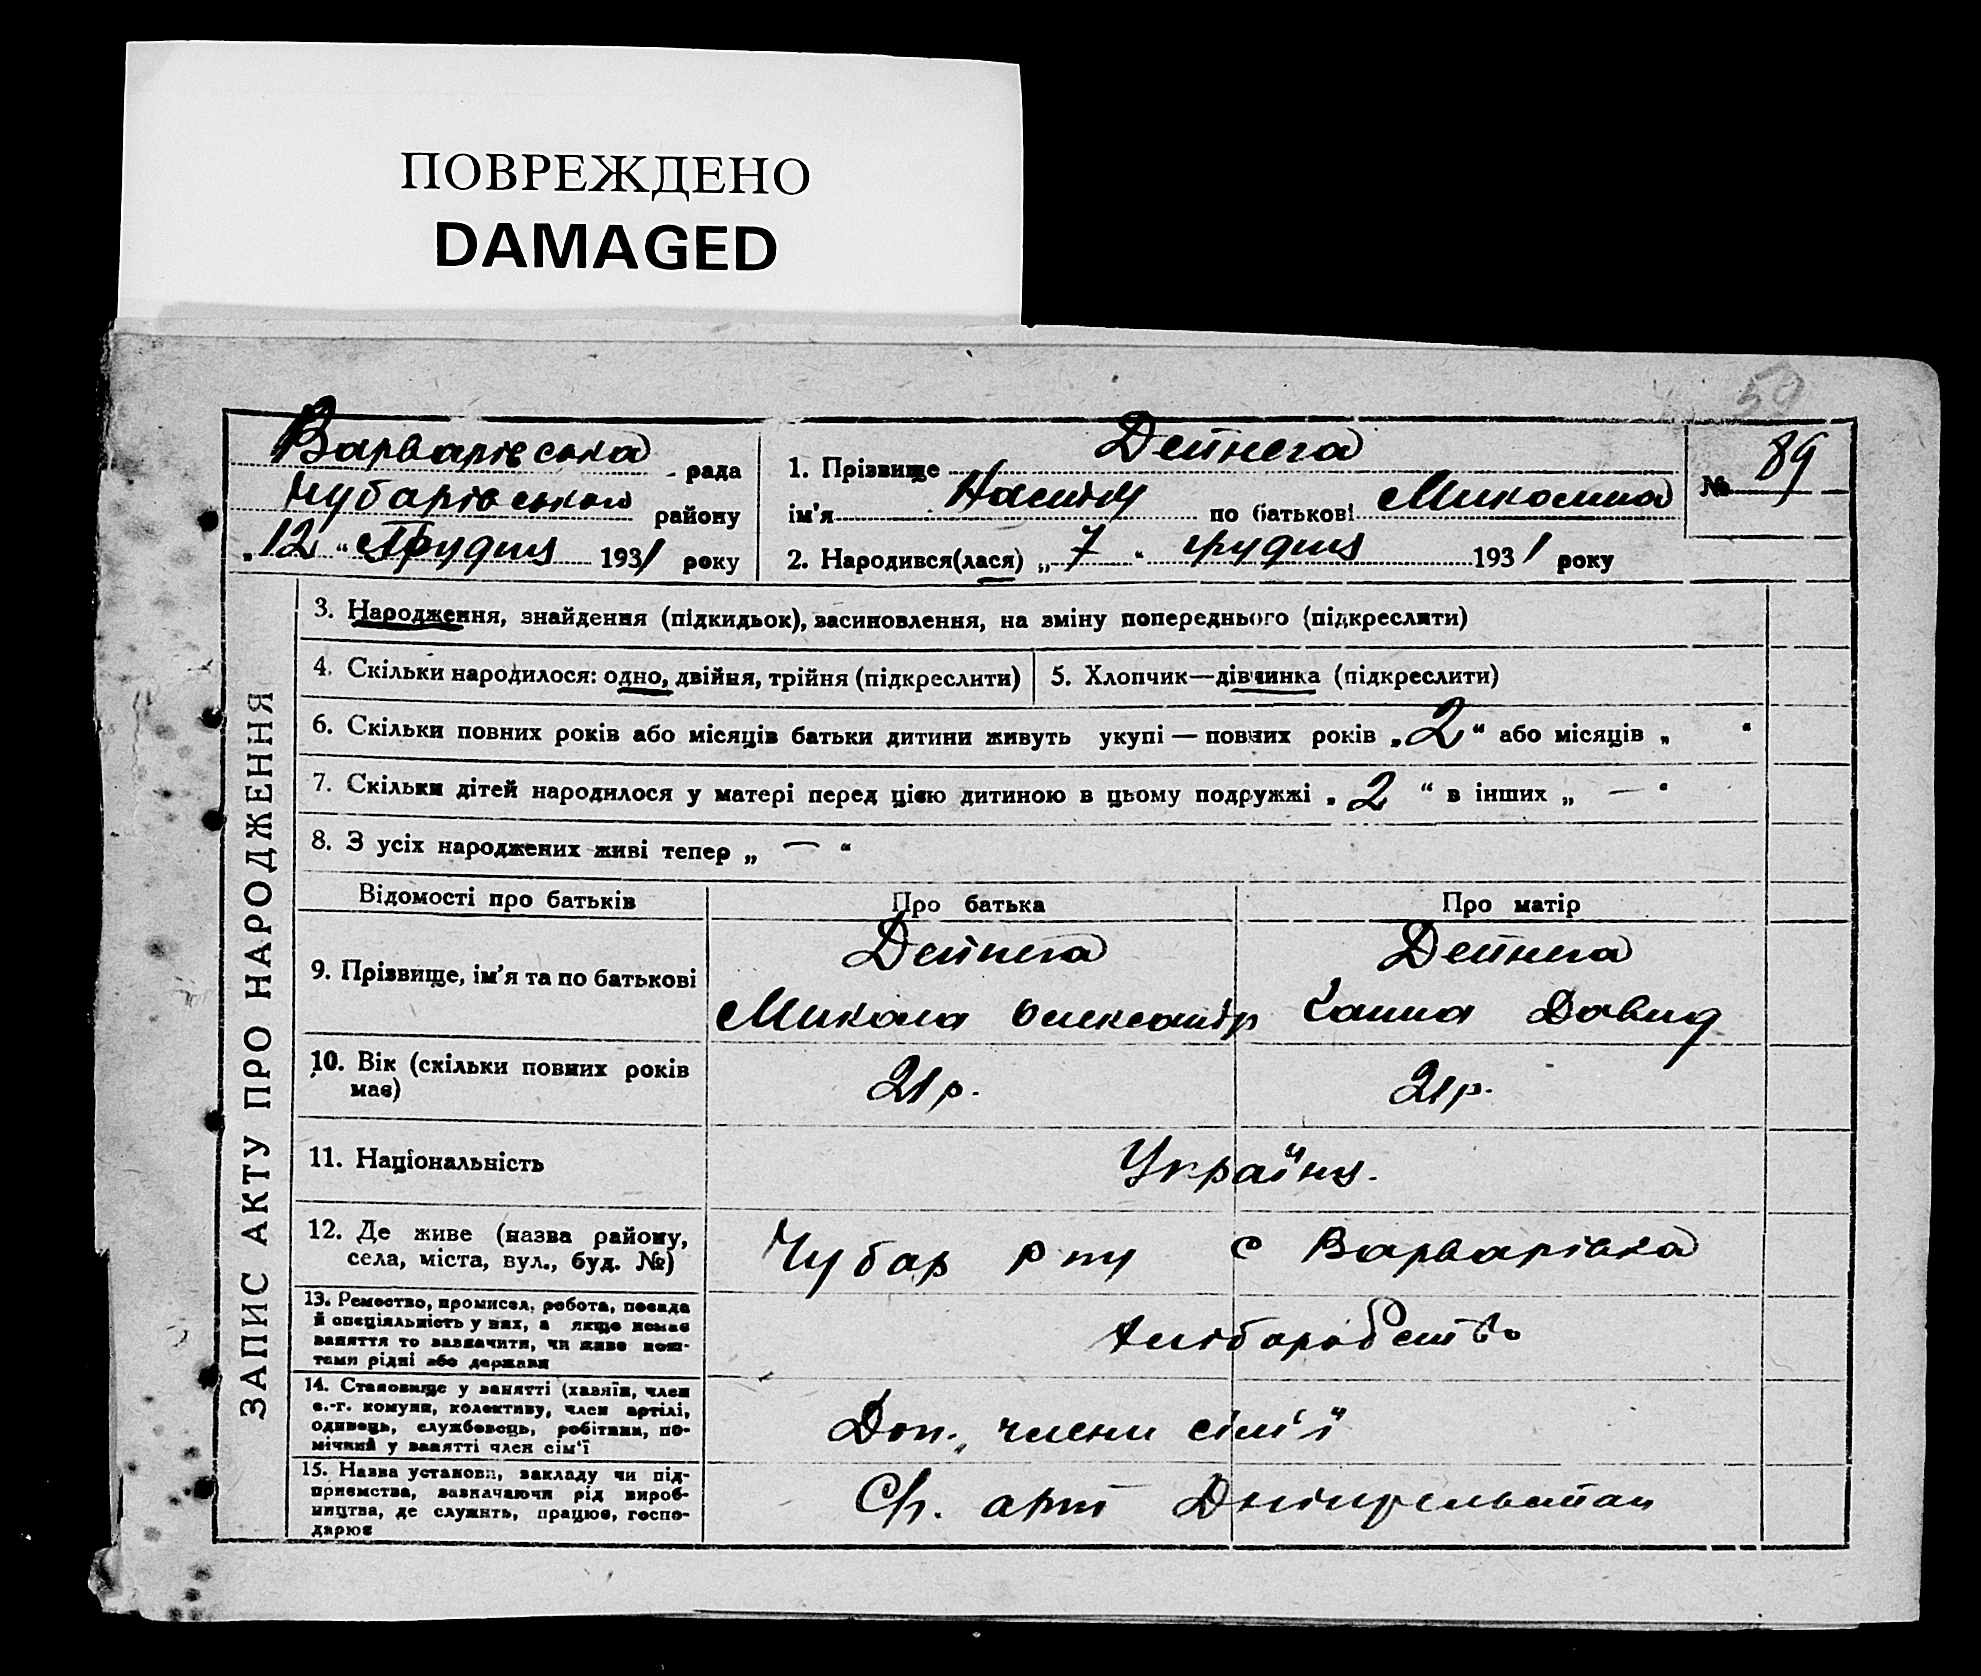 ПОВРЕЖДЕНО
DAMAGED
50
Варварівська рада
Чубарівського району
„12“ Грудня 1931 року
1. Прізвище Дейнега
ім'я Настя по батькові Миколина
2. Народився(лася) „7“ грудня 1931 року
№ 89
ЗАПИС АКТУ ПРО НАРОДЖЕННЯ
3. Народження, знайдення (підкидьок), засиновлення, на зміну попереднього (підкреслити)
4. Скільки народилося: одно, двійня, трійня (підкреслити)
5. Хлопчик—дівчинка (підкреслити)
6. Скільки повних років або місяців батьки дитини живуть укупі — повних років „2“ або місяців „ “
7. Скільки дітей народилося у матері перед цією дитиною в цьому подружжі „2“ в інших „ — “
8. З усіх народжених живі тепер „ — “
Відомості про батьків Про батька Про матір
9. Прізвище, ім'я та по батькові
Дейнега
Микола Олександр
Дейнега
Ганна Давид
10. Вік (скільки повних років
має)
21 р. 21 р.
11. Національність Українц.
12. Де живе (назва району,
села, міста, вул., буд. №)
Чубар р ну с Варварівка
13. Ремество, промисел, робота, посада
й спеціяльність у них, а якщо немає
заняття то зазначити, чи живе кош-
тами рідні або держави
Хліборобство
14. Становище у занятті (хазяїн, член
с.-г. комуни, колективу, член артілі,
одинець, службовець, робітник, по-
мічний у занятті член сім'ї
Доп. члени сім'ї
15. Назва установи, закладу чи під-
приємства, зазначаючи рід вироб-
ництва, де служить, працює, госпо-
дарює
арт